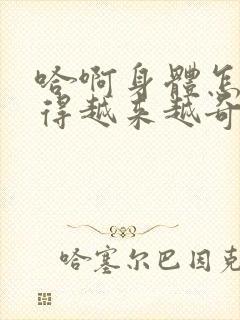 哈啊身體怎
得越来越奇
哈塞尔巴因克